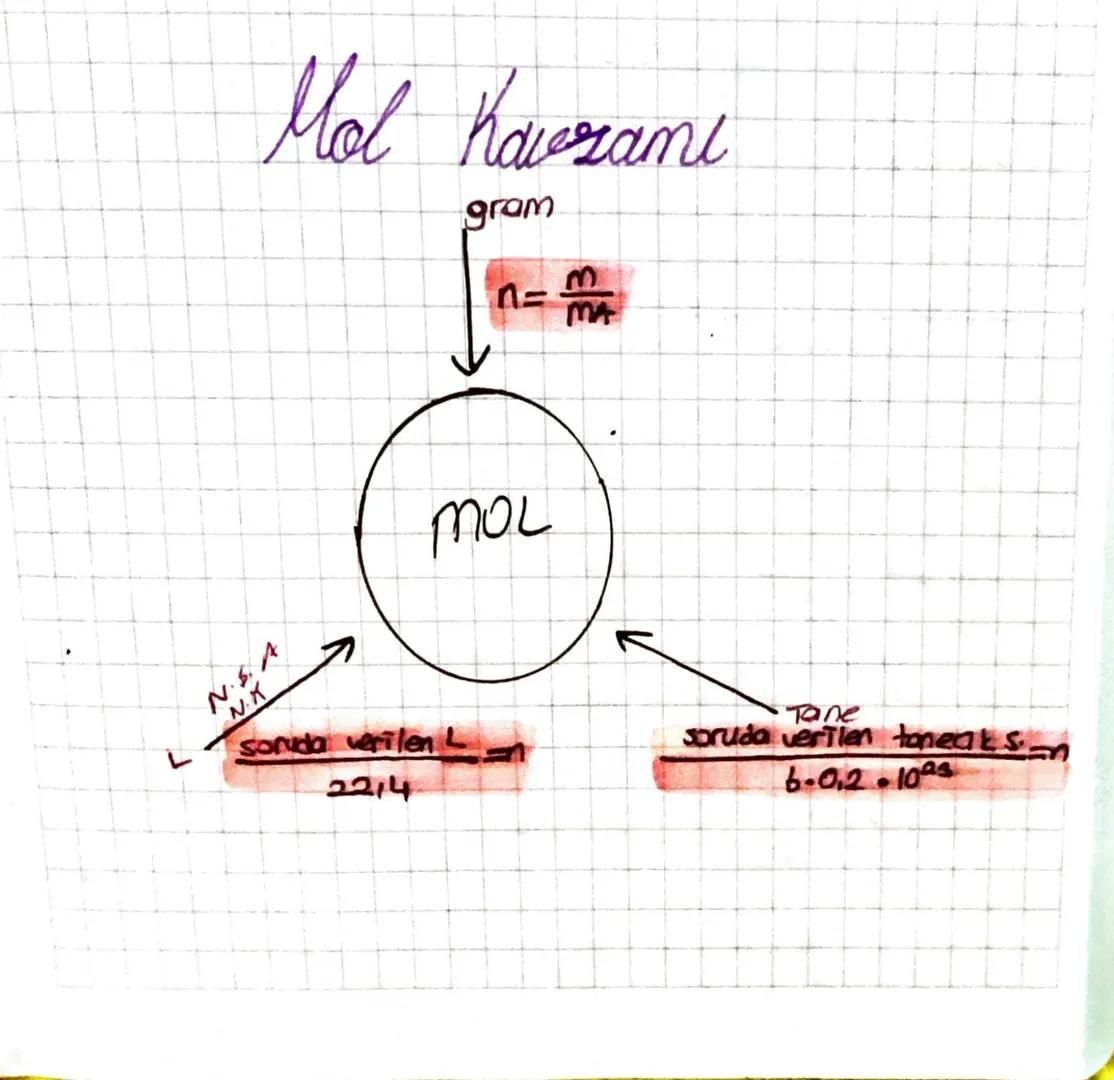 Mol Kavramı
gram
n = m / mA
MOL
N.Ş.A
N.K
L
soruda verilen L / 22,4 = n
Tane
soruda verilen tanecik s. / 6.0,2 . 10²³ = n